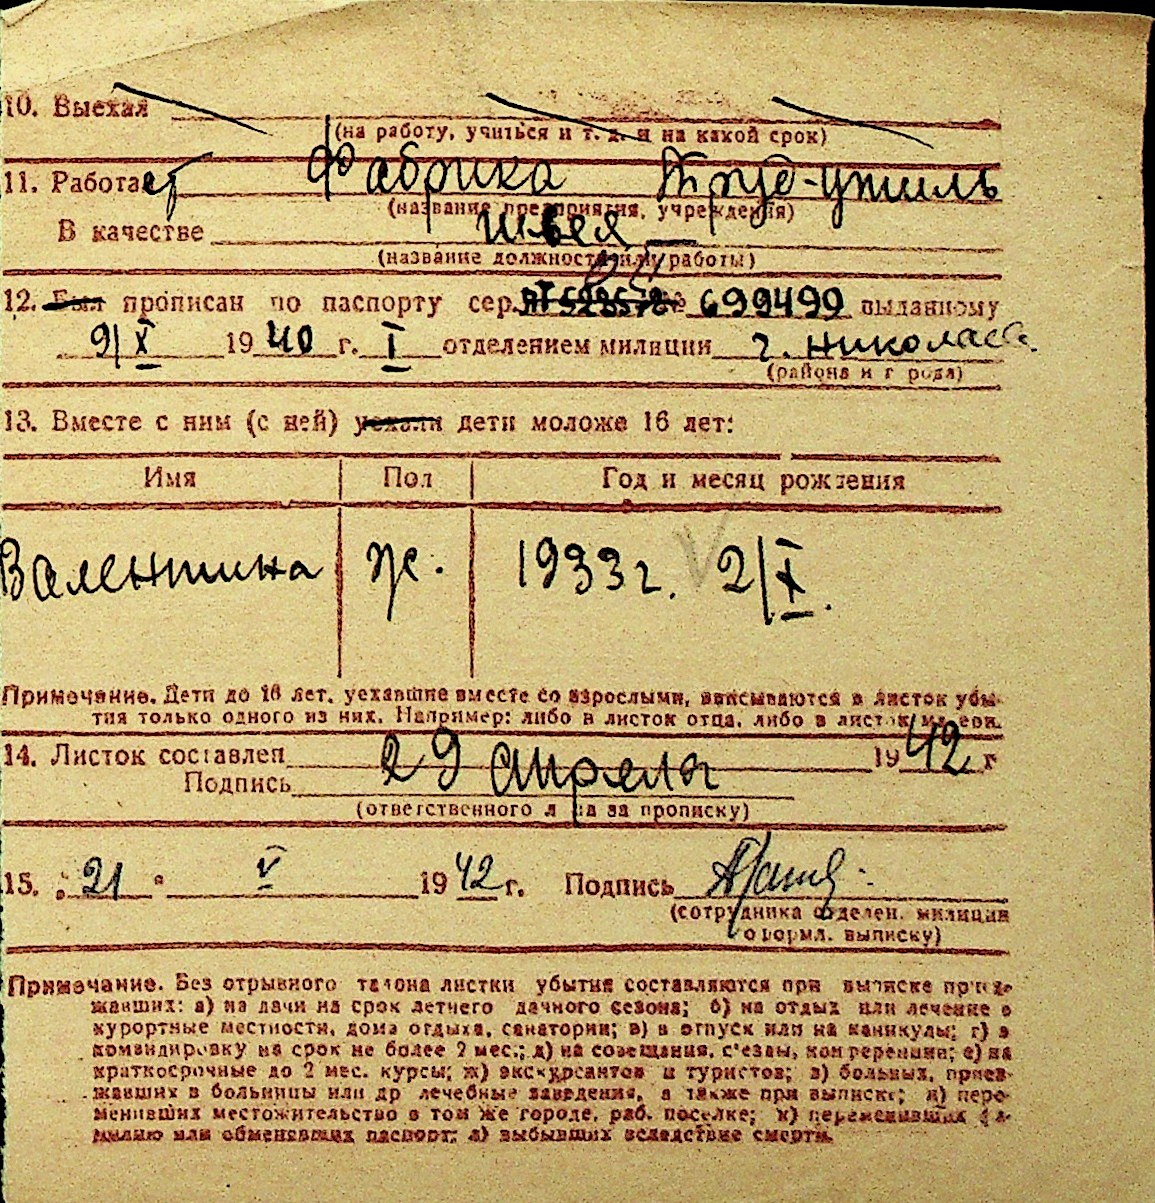 10. Выехал
(на работу, учиться и т. д. и на какой срок)
11. Работает Фабрика Труд-утиль
(название предприятия, учреждения)
В качестве швея
(название должности или работы)
12. Был прописан по паспорту сер. № 699499 выданному
9/X 1940 г. I отделением милиции г. Николаев
(района и города)
13. Вместе с ним (с ней) уехали дети моложе 16 лет:
Имя Пол Год и месяц рождения
Валентина ж. 1933 г. 2/X.
Примечание. Дети до 16 лет, уехавшие вместе со взрослыми, вписываются в листок убы-
тия только одного из них. Например: либо в листок отца, либо в листок матери.
14. Листок составлен 29 апреля 1942 г
Подпись
(ответственного лица за прописку)
15. „21" V 1942 г. Подпись
(сотрудника отделен. милиции
оформл. выписку)
Примечание. Без отрывного талона листки убытия составляются при выписке приез-
жавших: а) на дачи на срок летнего дачного сезона; б) на отдых или лечение в
курортные местности, дома отдыха, санатории; в) в отпуск или на каникулы; г) в
командировку на срок не более 2 мес.; д) на совещания, с'езды, конференции; е) на
краткосрочные до 2 мес. курсы; ж) экскурсантов и туристов; з) больных, приез-
жавших в больницы или др лечебные заведения, а также при выписке; и) пере-
менивших местожительство в том же городе, раб. поселке; к) переменивших фа-
милию или обменявших паспорт; л) выбывших вследствие смерти.